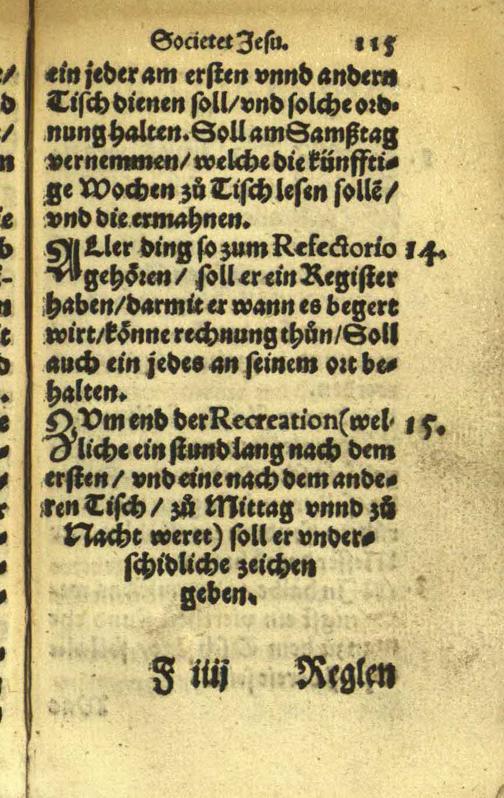 Societet Jesu. 115
ein jeder am ersten vnnd andern
Tisch dienen soll/vnd solche ord-
nung halten. Soll am Samßtag
vernemmen/welche die künffti-
ge Wochen zů Tisch lesen sollẽ/
vnd die ermahnen.
ALler ding so zum Refectorio 14.
gehören/ soll er ein Register
haben/darmit er wann es begert
wirt/könne rechnung thůn/Soll
auch ein jedes an seinem ort be-
halten.
ZVm end der Recreation (wel- 15.
liche ein stund lang nach dem
ersten/ vnd eine nach dem ande-
ren Tisch/ zů Mittag vnnd zů
Nacht weret) soll er vnder-
schidliche zeichen
geben.
F iiij Reglen